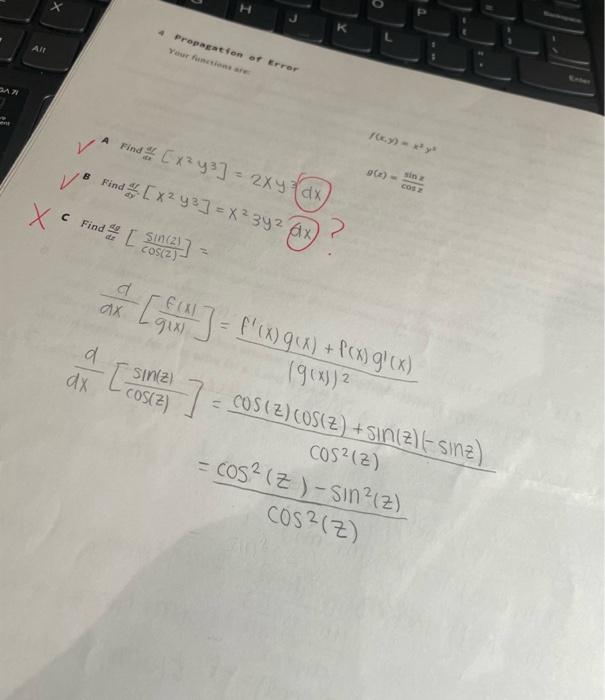 X
H
J
K
L
O
P
Alt
Enter
4 Propagation of Error
Your functions are:
f(x,y) = x² y³
g(z) = sin z / cos z
✓ A Find df/dx [x² y³] = 2xy³ dx
✓ B Find df/dy [x² y³] = x² 3y² dx ?
X C Find dg/dz [sin(z) / cos(z)] =
d/dx [f(x) / g(x)] = f'(x)g(x) + f(x)g'(x) / (g(x))²
d/dx [sin(z) / cos(z)] = cos(z)cos(z) + sin(z)(-sinz) / cos²(z)
= cos²(z) - sin²(z) / cos²(z)